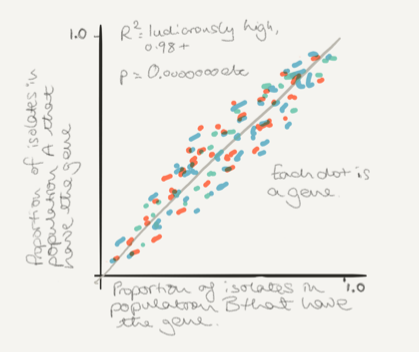 1.0
R²= ludicrously high,
0.98+
p= 0.00000000etc
Proportion of isolates in
population A that
have the gene
Each dot is
a gene.
1.0
Proportion of isolates in
population B that have
the gene.